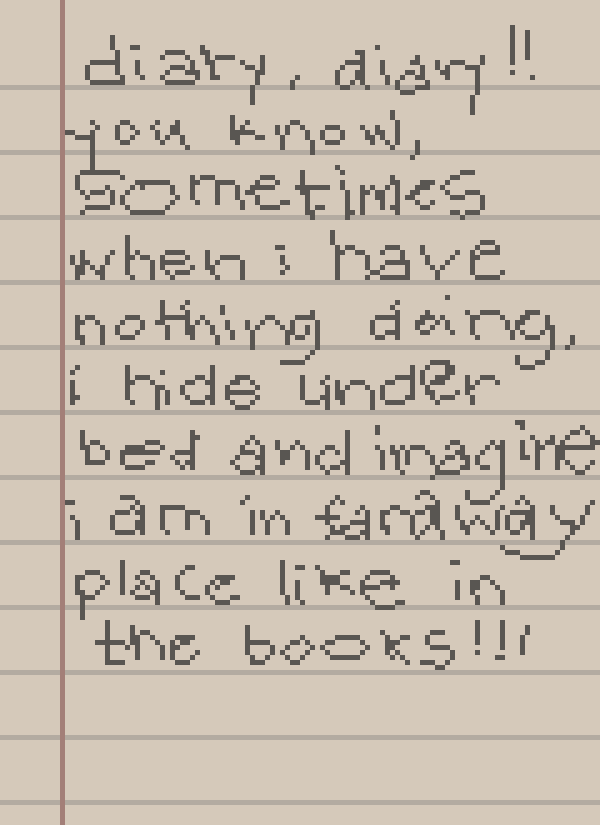 diary, diary!!
you know,
sometimes
when i have
nothing doing,
i hide under
bed and imagine
i am in faraway
place like in
the books!!!